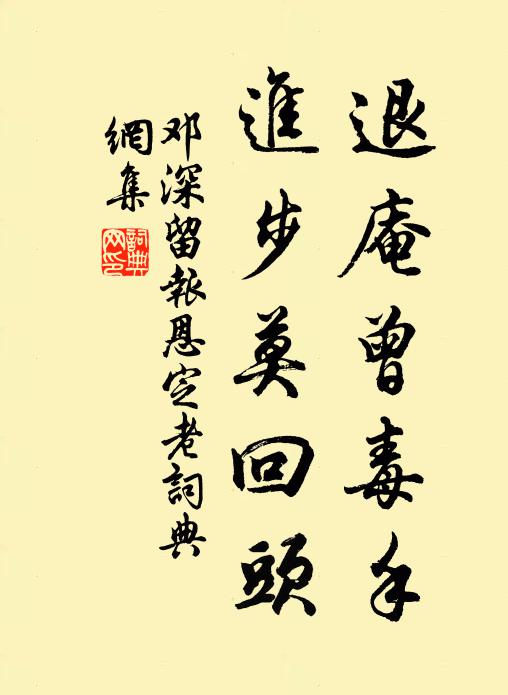 退庵曾毒手
進步莫回頭
邓深留報恩定老詞典
網集
詞典網印